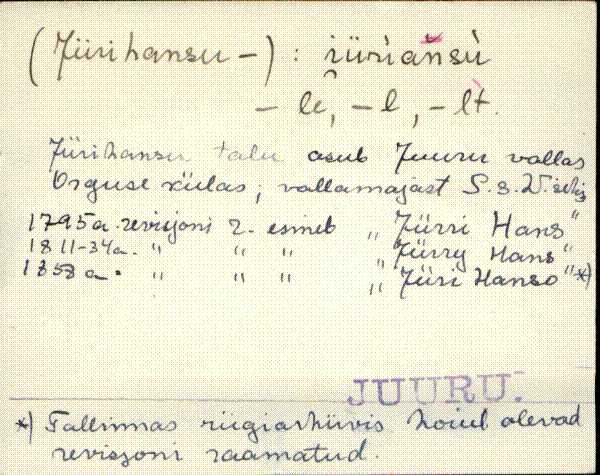 (Jüri hansu –) : iüriansù
– le, – l, – lt.
Jürihansu talu asub Juuru vallas
Orguse külas, vallamajast S. s. W.
1795a. revisjoni r. esineb „Jürri Hans"
1811-34a. " " " „Jürry Hans"
1858 a. " " " „Jüri Hanso" *)
JUURU.
*) Tallinnas riigiarhiivis hoiul olevad
revisjoni raamatud.